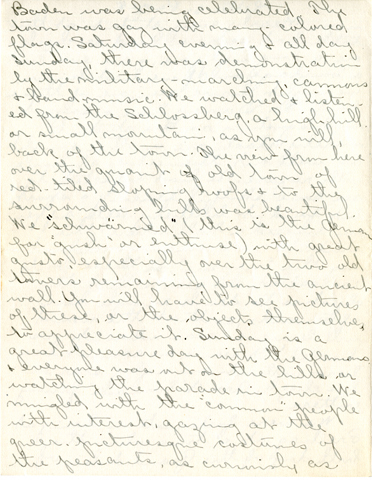 Baden was being celebrated. The
town was gay with many colored
flags. Saturday evening & all day
Sunday, there was demonstration
by the military - marching, cannons
& band music. We watched & listen-
ed from the Schlossberg, a high hill,
or small mountain, as you will,
back of the town. The view from here
over the quaint old town of
red-tiled sloping roofs & to the
surrounding hills was beautiful.
We "schwärmed", (this is the German
for 'gush' or enthuse) with great
gusto, especially over the two old
towers remaining from the ancient
wall. You will have to see pictures
of these, or the objects themselves,
to appreciate it. Sunday is a
great pleasure day with the Germans
& everyone was out on the hills or
watching the parade in town. We
mingled with the common people
with interest, gazing at the
queer, picturesque costumes of
the peasants, as curiously as